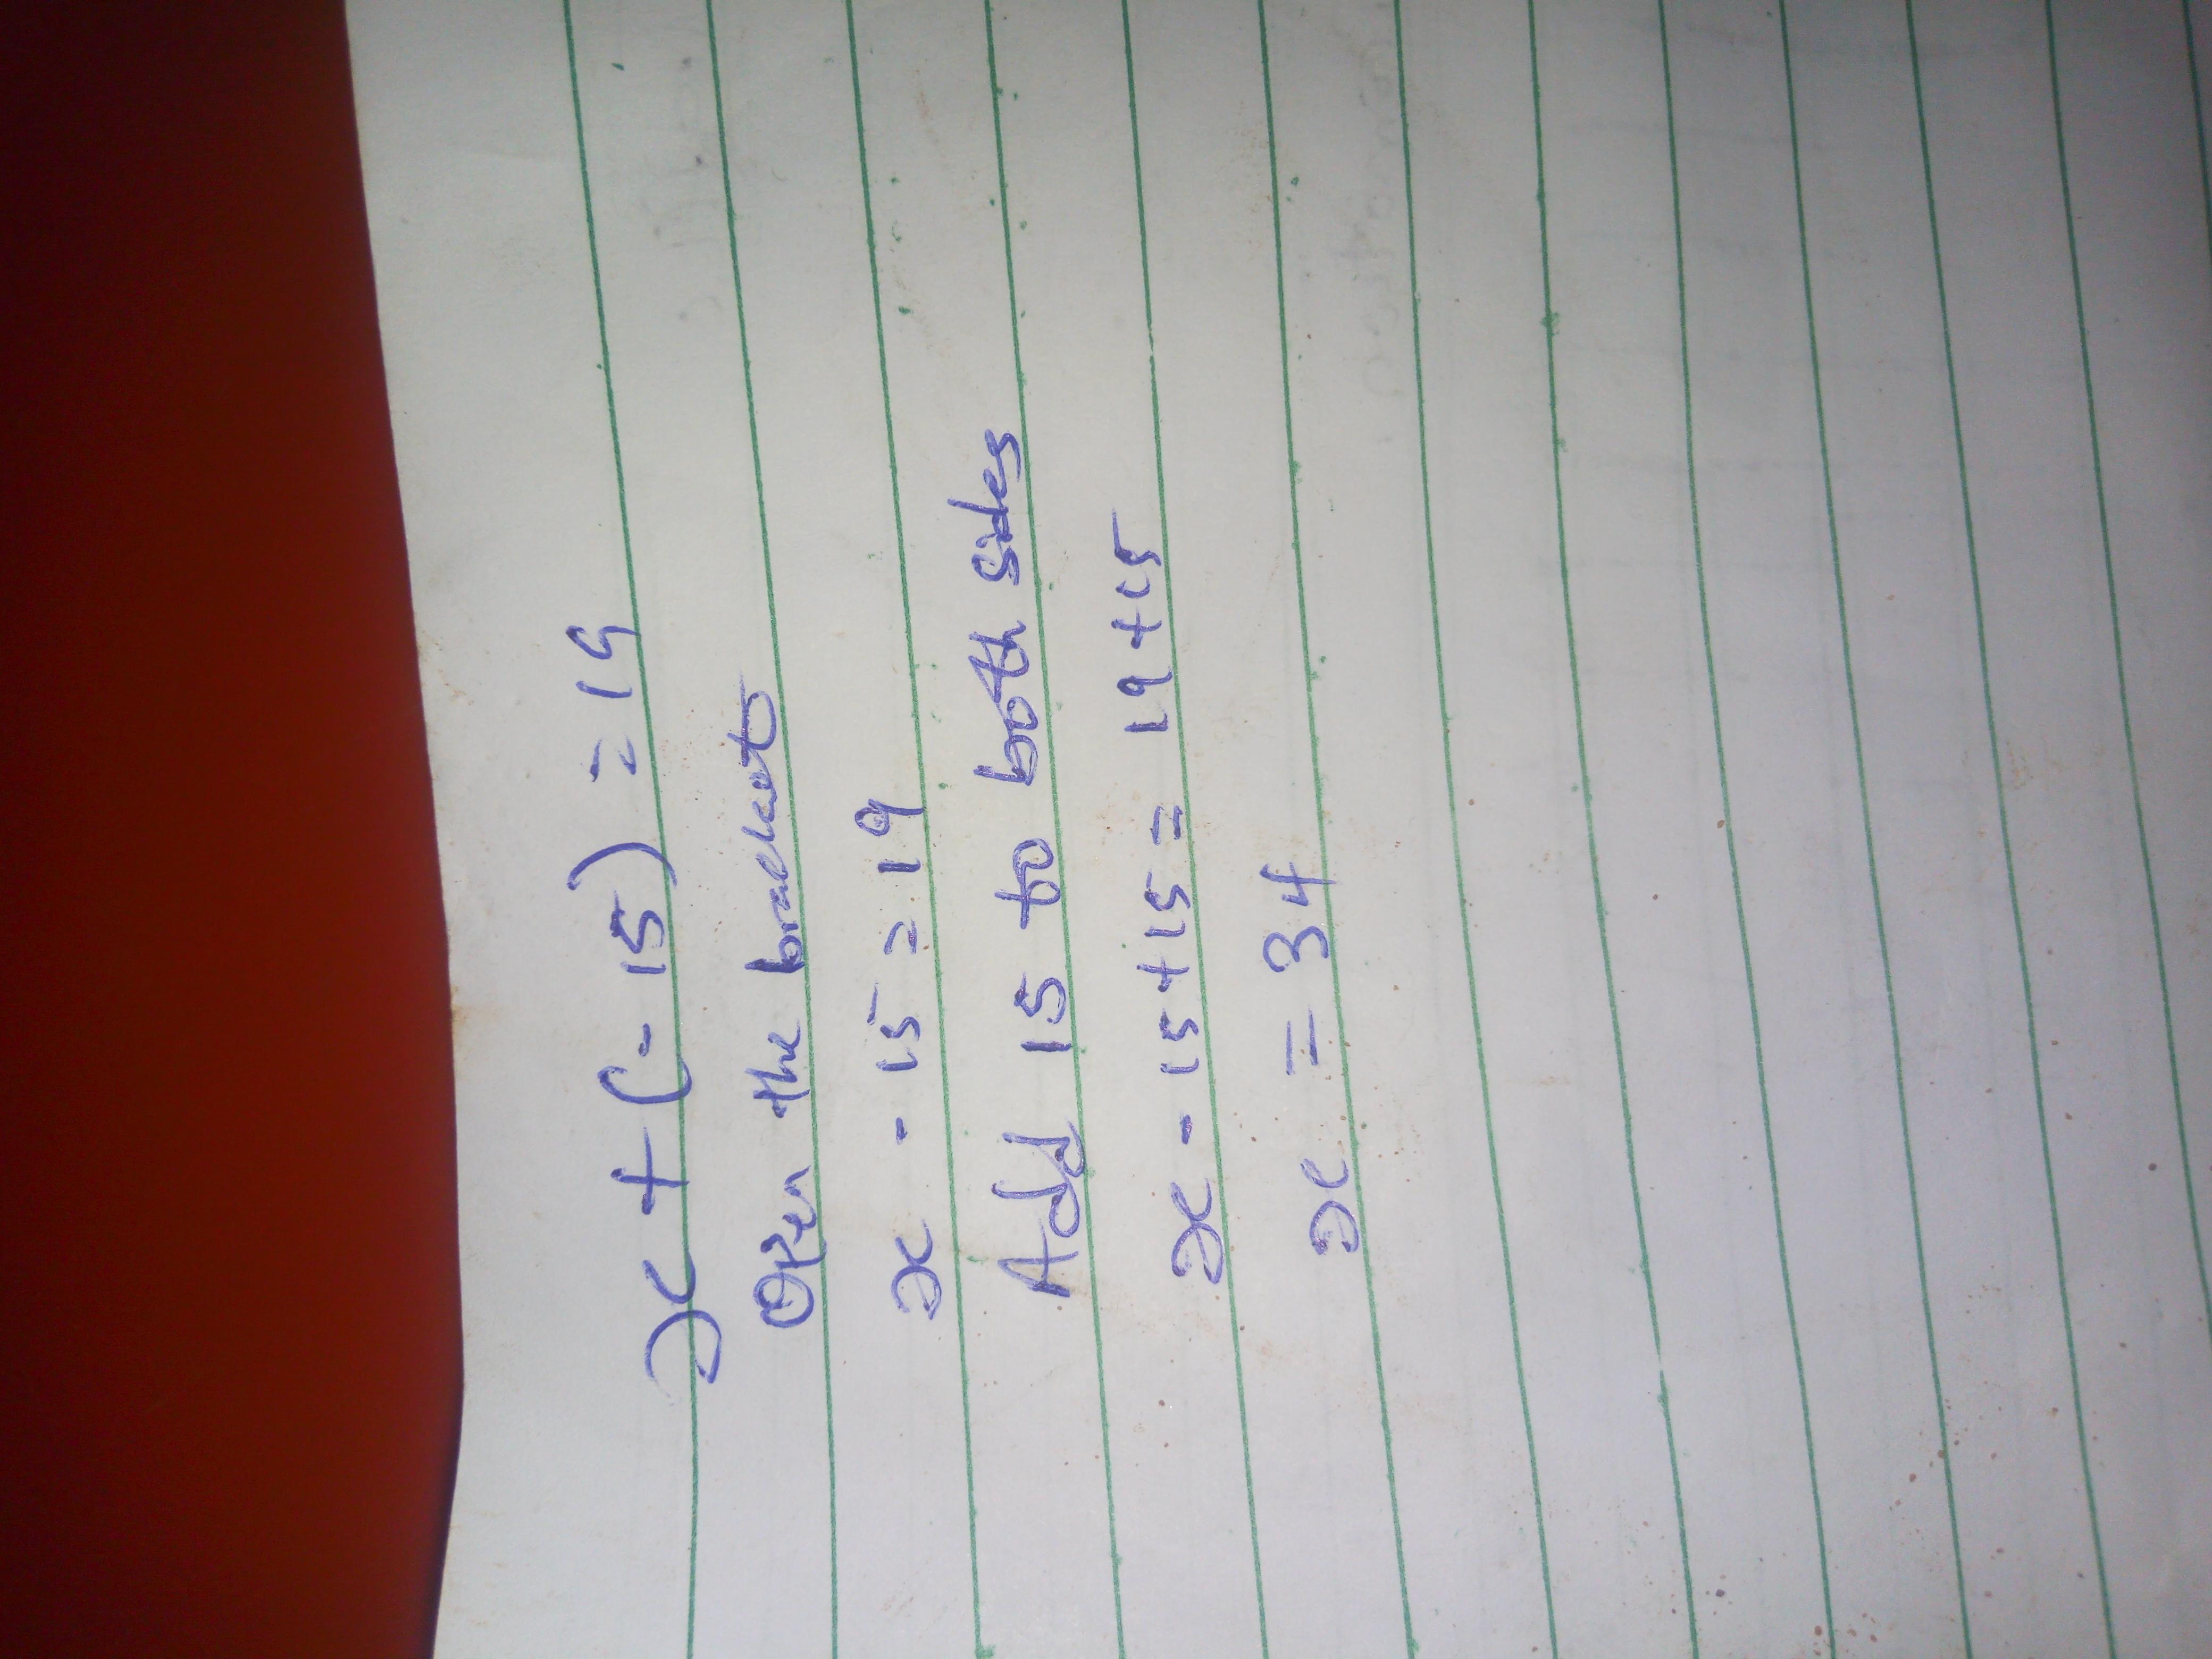 x + (- 15) = 19
Open the brackets
x - 15 = 19
Add 15 to both sides
x - 15 + 15 = 19 + 15
x = 34